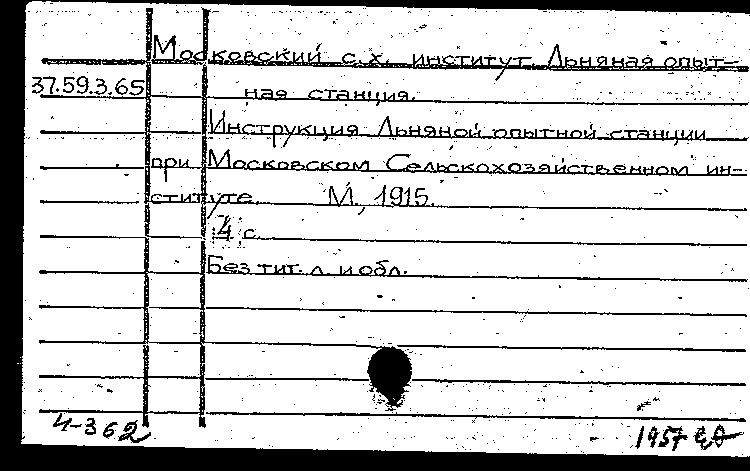 Московский с.х. институт. Льняная опыт-
37.59.3.65 ная станция.
Инструкция Льняной опытной станции
при Московском Сельскохозяйственном ин-
ституте. М., 1915.
4 с.
Без тит. л. и обл.
4-362 1957